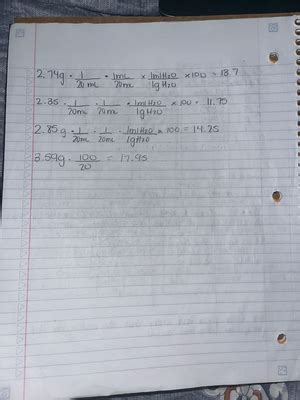 2.74g · 1/20mL · 1mL/20mL × 1mlH2O/1gH2O ×100 = 13.7
2.35 · 1/20mL · 1/20mL · 1mlH2O/1gH2O ×100 = 11.75
2.85g · 1/20mL · 1/20mL · 1mlH2O/1gH2O ×100 = 14.25
3.59g · 100/20 = 17.95